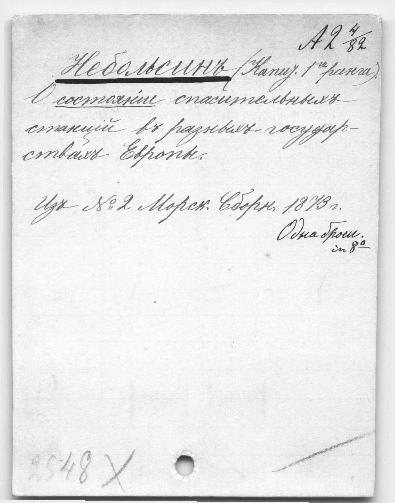 А2 4/82
Небольсинъ (Капит. 1го ранга).
О состояніи спасительныхъ
станцій въ разныхъ государ-
ствахъ Европы.
Изъ № 2 Морск. Сборн. 1873 г.
Одна брош.
in 8º
2548 X